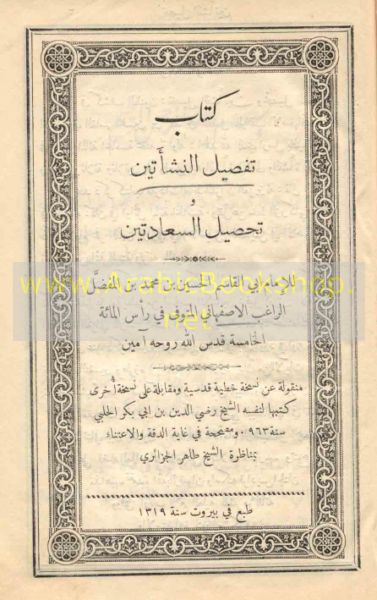 كتاب
تفصيل النشأتين
و
تحصيل السعادتين
للإمام أبي القاسم الحسين بن محمد بن المفضل
الراغب الاصفهاني المتوفى في رأس المائة
الخامسة قدس الله روحه آمين
منقولة عن نسخة خطية قدسية ومقابلة على نسخة أخرى
كتبها لنفسه الشيخ رضي الدين بن ابي بكر الحلبي
سنة ٩٦٣ ومصححة في غاية الدقة والاعتناء
بمناظرة الشيخ طاهر الجزائري
طبع في بيروت سنة ١٣١٩
www.ArabicBookshop.
net